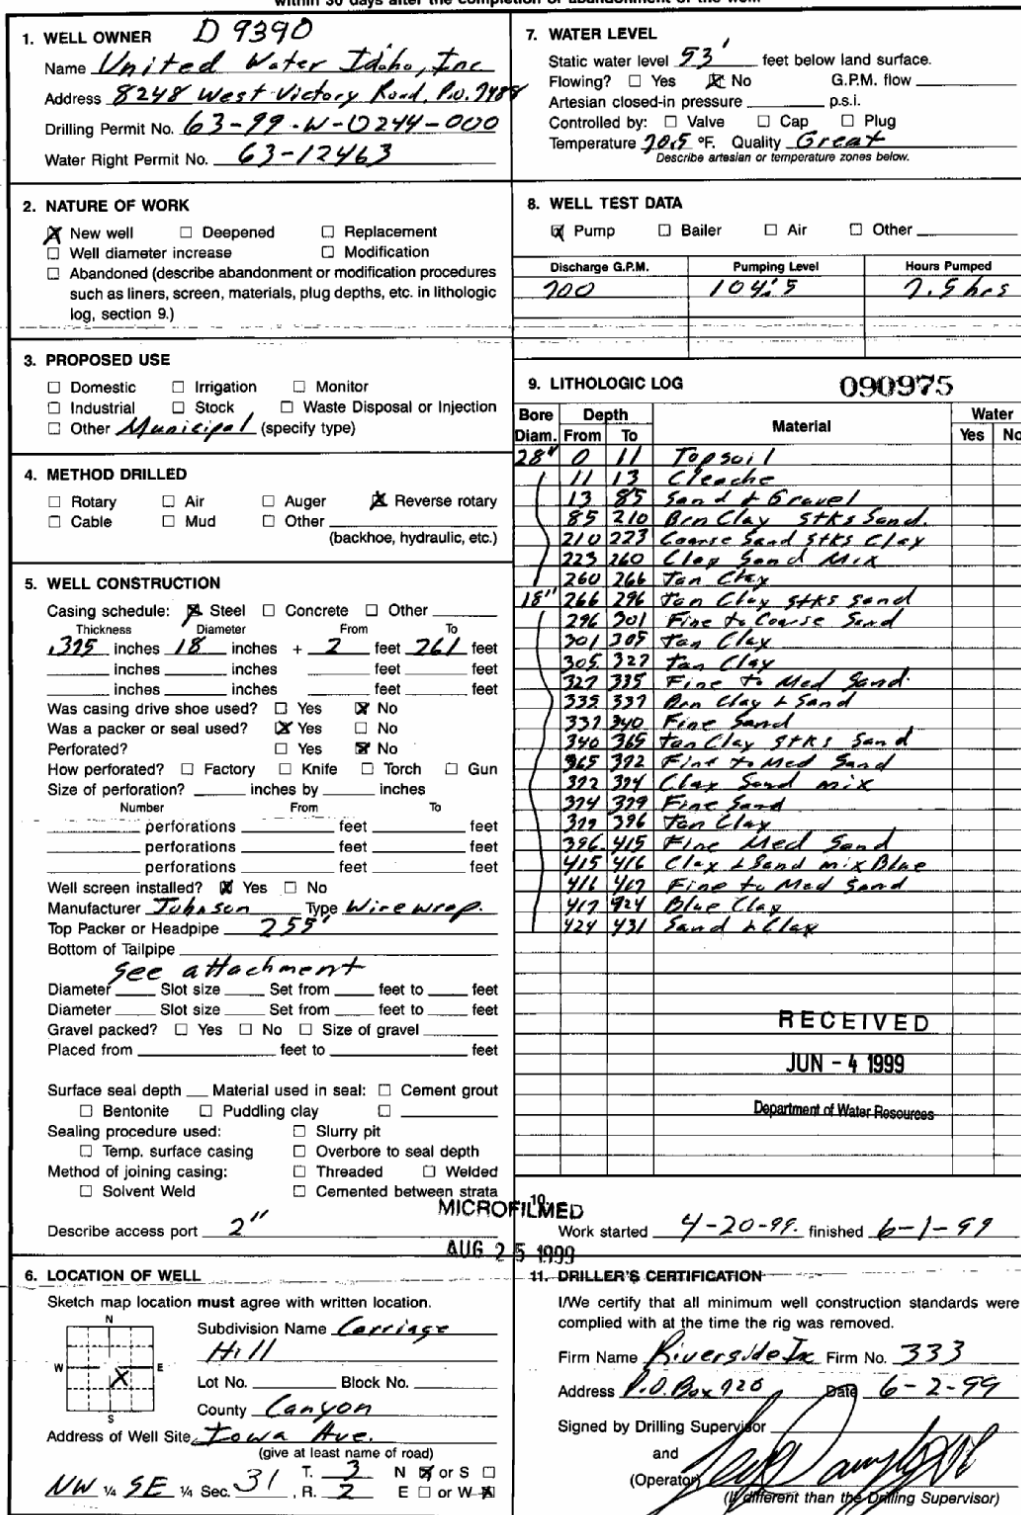 1. WELL OWNER D 9390
Name United Water Idaho, Inc
Address 8248 West Victory Road, P.O. 7488
Drilling Permit No. 63-99-W-0244-000
Water Right Permit No. 63-12463
2. NATURE OF WORK
X New well ☐ Deepened ☐ Replacement
☐ Well diameter increase ☐ Modification
☐ Abandoned (describe abandonment or modification procedures
such as liners, screen, materials, plug depths, etc. in lithologic
log, section 9.)
3. PROPOSED USE
☐ Domestic ☐ Irrigation ☐ Monitor
☐ Industrial ☐ Stock ☐ Waste Disposal or Injection
☐ Other Municipal (specify type)
4. METHOD DRILLED
☐ Rotary ☐ Air ☐ Auger X Reverse rotary
☐ Cable ☐ Mud ☐ Other
(backhoe, hydraulic, etc.)
5. WELL CONSTRUCTION
Casing schedule: X Steel ☐ Concrete ☐ Other
Thickness Diameter From To
.375 inches 18 inches + 2 feet 261 feet
inches inches feet feet
inches inches feet feet
Was casing drive shoe used? ☐ Yes X No
Was a packer or seal used? X Yes ☐ No
Perforated? ☐ Yes X No
How perforated? ☐ Factory ☐ Knife ☐ Torch ☐ Gun
Size of perforation? inches by inches
Number From To
perforations feet feet
perforations feet feet
perforations feet feet
Well screen installed? X Yes ☐ No
Manufacturer Johnson Type Wirewrap.
Top Packer or Headpipe 255'
Bottom of Tailpipe
See attachment
Diameter Slot size Set from feet to feet
Diameter Slot size Set from feet to feet
Gravel packed? ☐ Yes ☐ No ☐ Size of gravel
Placed from feet to feet
Surface seal depth Material used in seal: ☐ Cement grout
☐ Bentonite ☐ Puddling clay ☐
Sealing procedure used: ☐ Slurry pit
☐ Temp. surface casing ☐ Overbore to seal depth
Method of joining casing: ☐ Threaded ☐ Welded
☐ Solvent Weld ☐ Cemented between strata
MICROFILMED
Describe access port 2"
AUG 25 1999
6. LOCATION OF WELL
Sketch map location must agree with written location.
N
W X E
S
Subdivision Name Carriage
Hill
Lot No. Block No.
County Canyon
Address of Well Site Iowa Ave.
(give at least name of road)
T. 3 N X or S ☐
NW ¼ SE ¼ Sec. 31, R. 2 E ☐ or W X
7. WATER LEVEL
Static water level 53' feet below land surface.
Flowing? ☐ Yes X No G.P.M. flow
Artesian closed-in pressure p.s.i.
Controlled by: ☐ Valve ☐ Cap ☐ Plug
Temperature 70.5 °F. Quality Great
Describe artesian or temperature zones below.
8. WELL TEST DATA
X Pump ☐ Bailer ☐ Air ☐ Other
Discharge G.P.M. Pumping Level Hours Pumped
700 104.5 7.5 hrs
9. LITHOLOGIC LOG 090975
Bore Depth Material Water
Diam. From To Yes No
28" 0 11 Topsoil
11 13 Cleache
13 85 Sand & Gravel
85 210 Brn Clay stks Sand.
210 223 Coarse Sand stks Clay
223 260 Clay Sand Mix
260 266 Tan Clay
18" 266 296 Tan Clay stks sand
296 301 Fine to Coarse Sand
301 305 Tan Clay
305 327 Tan Clay
327 335 Fine to Med Sand
335 337 Brn Clay & Sand
337 340 Fine Sand
340 365 Tan Clay stks Sand
365 372 Fine to Med Sand
372 374 Clay Sand mix
374 379 Fine Sand
379 396 Tan Clay
396 415 Fine Med Sand
415 416 Clay & Sand mix Blue
416 417 Fine to Med Sand
417 424 Blue Clay
424 431 Sand & Clay
RECEIVED
JUN - 4 1999
Department of Water Resources
10.
Work started 4-20-99. finished 6-1-99
11. DRILLER'S CERTIFICATION
I/We certify that all minimum well construction standards were
complied with at the time the rig was removed.
Firm Name Riverside Inc Firm No. 333
Address P.O. Box 920 Date 6-2-99
Signed by Drilling Supervisor
and
(Operator)
(If different than the Drilling Supervisor)